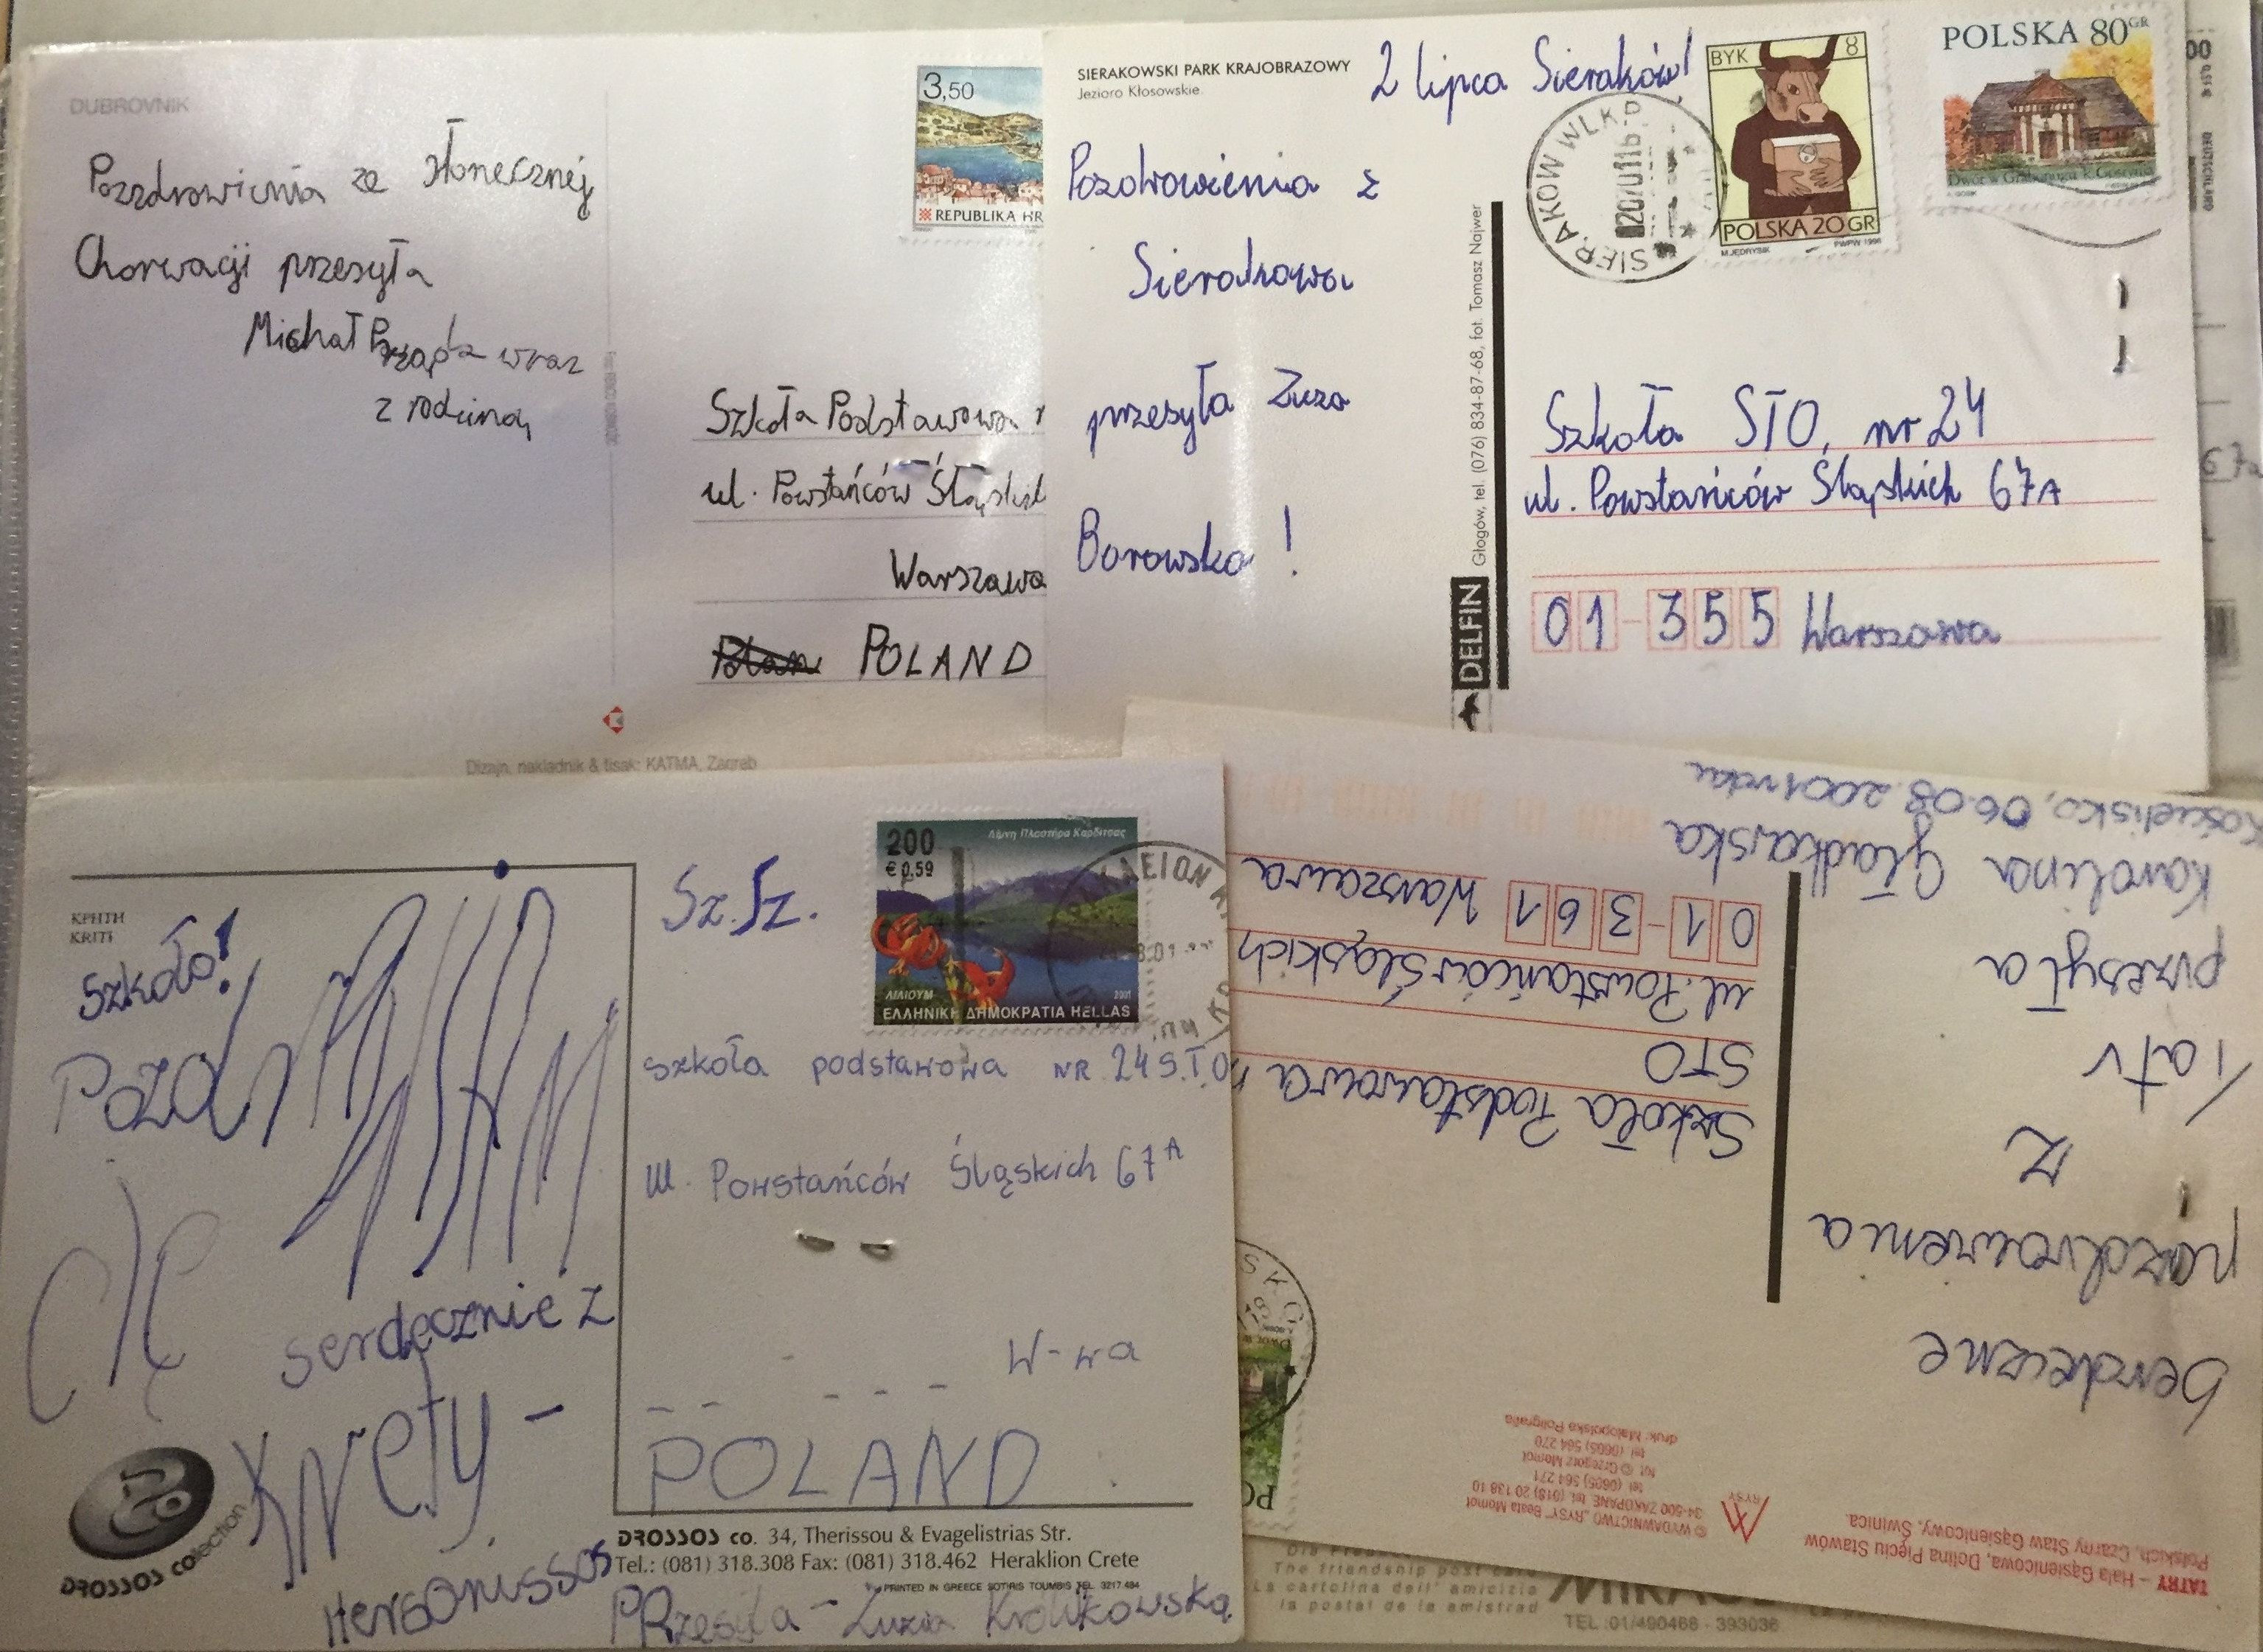 DUBROVNIK
Pozdrowienia ze słonecznej
Chorwacji przesyła
Michał wraz
z rodziną
3,50
REPUBLIKA HR
Szkoła Podstawowa
ul. Powstańców
Warszawa
POLAND
Dizajn, nakladnik & tisak: KATMA, Zagreb
SIERAKOWSKI PARK KRAJOBRAZOWY
Jezioro Kłosowskie
2 lipca Sieraków!
Pozdrowienia z
Sierakowa
przesyła Zuza
Borowska!
SIERAKOW WLKP
BYK 8
POLSKA 20 GR
M.JĘDRYSIK PWPW 1996
POLSKA 80 GR
DELFIN Głogów, tel. (076) 834-87-68, fot. Tomasz Najwer
Szkoła STO, nr 24
ul. Powstańców Śląskich 67A
01-355 Warszawa
DEUTSCHLAND
67a
ΚΡΗΤΗ
KRITI
Szkoło!
serdecznie z
Krety-
Hersonissos
PRzesyła - Luzia Królikowska
DROSSOS collection
Sz. Sz.
200
€ 0,59
Λίμνη Πλαστήρα Καρδίτσας
ΛΙΛΙΟΥΜ 2001
ΕΛΛΗΝΙΚΗ ΔΗΜΟΚΡΑΤΙΑ HELLAS
szkoła podstawowa NR 24 S.T.O
ul. Powstańców Śląskich 67A
W-wa
POLAND
DROSSOS co. 34, Therissou & Evagelistrias Str.
Tel.: (081) 318.308 Fax: (081) 318.462 Heraklion Crete
PRINTED IN GREECE SOTIRIS TOUMBIS TEL. 3217.484
TATRY – Hala Gąsienicowa, Dolina Pięciu Stawów
Polskich, Czarny Staw Gąsienicowy, Świnica.
RYSY
© WYDAWNICTWO „RYSY" Beata Momot
34-500 ZAKOPANE, tel. (018) 20 138 10
tel. (0605) 564 271
fot. © Grzegorz Momot
tel. (0605) 564 270
druk: Małopolska Poligrafia
Serdeczne
pozdrowienia
z
Tatr
przesyła
Karolina Gładkowska
Kościelisko, 06.08.2001 roku
Szkoła Podstawowa
STO
ul. Powstańców Śląskich
01-361 Warszawa
The friendship post
La cartolina dell' amicizia
la postal de la amistrad
TEL:01/490468 - 393036